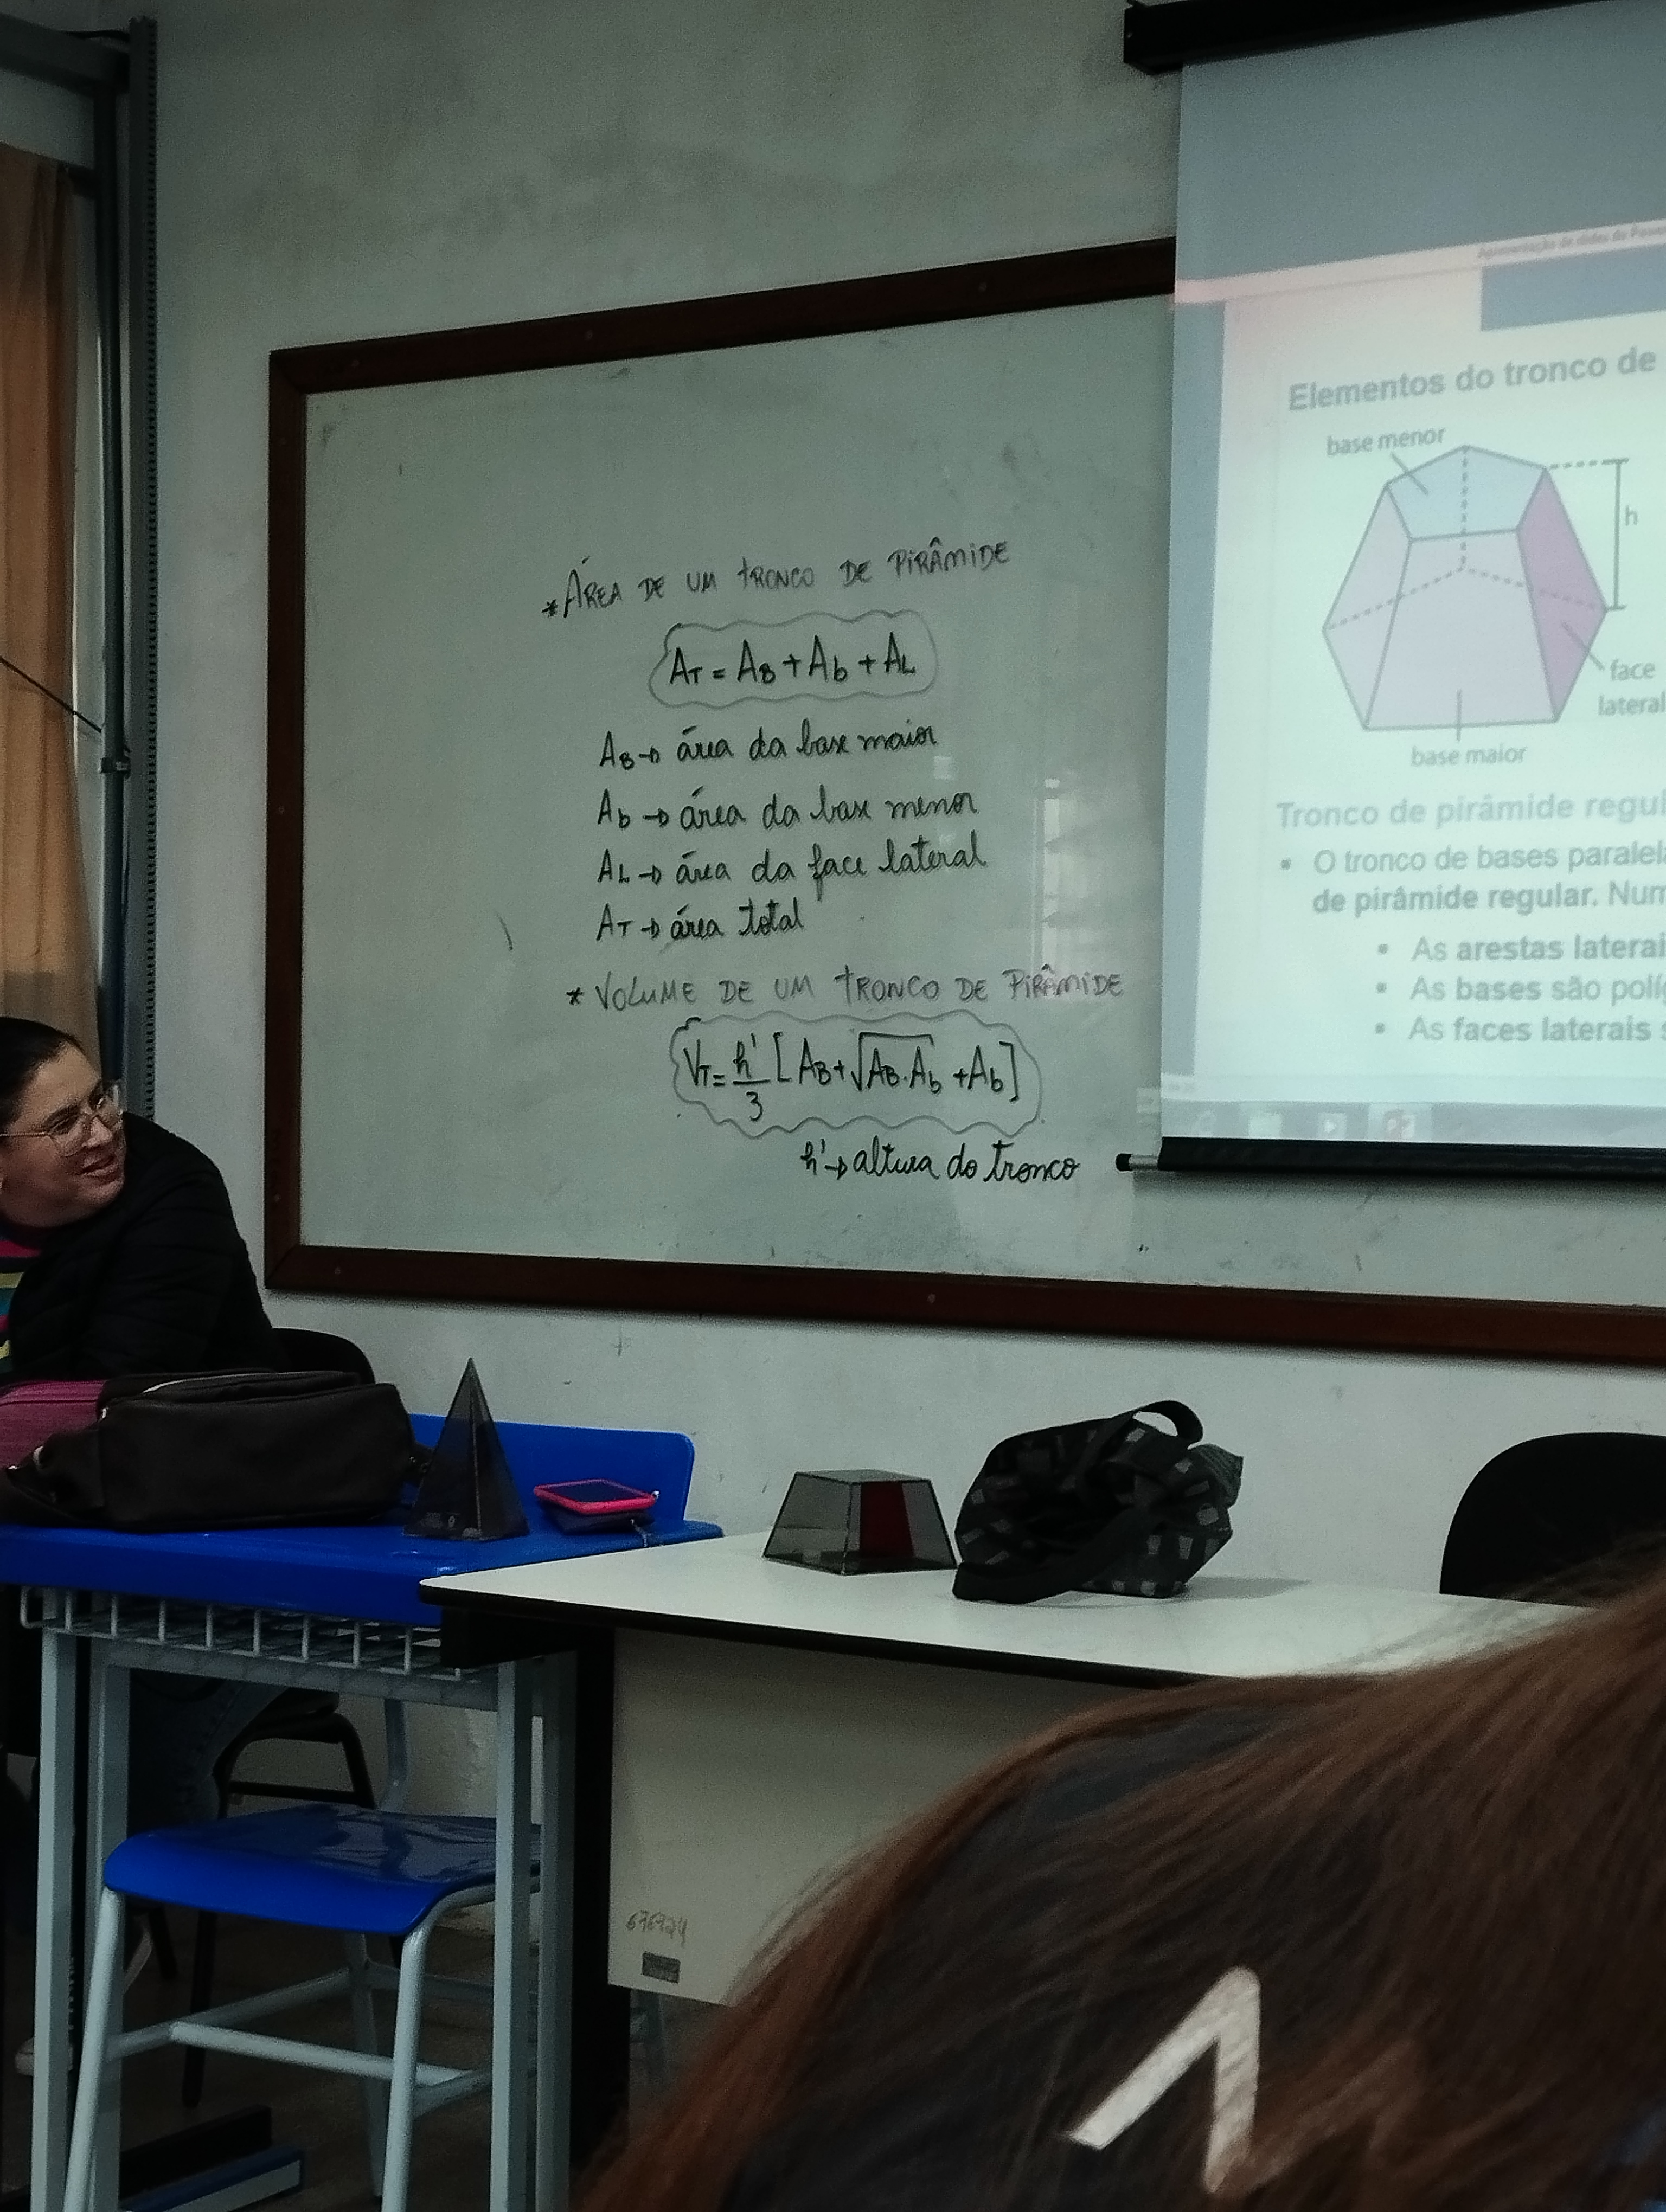 *ÁREA DE UM TRONCO DE PIRÂMIDE
AT = AB + Ab + AL
AB → área da base maior
Ab → área da base menor
AL → área da face lateral
AT → área total
* VOLUME DE UM TRONCO DE PIRÂMIDE
VT = h'/3 [AB + √AB.Ab + Ab]
h' → altura do tronco
Elementos do tronco de
base menor
h
face
lateral
base maior
Tronco de pirâmide regul
• O tronco de bases paralela
de pirâmide regular. Num
• As arestas laterai
• As bases são políg
• As faces laterais s